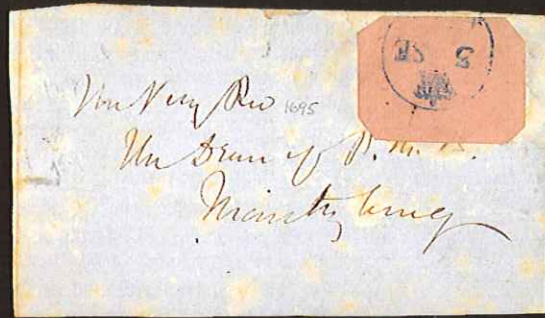 The Very Rev
1695
The Dean of P. M. B.
Maritzburg